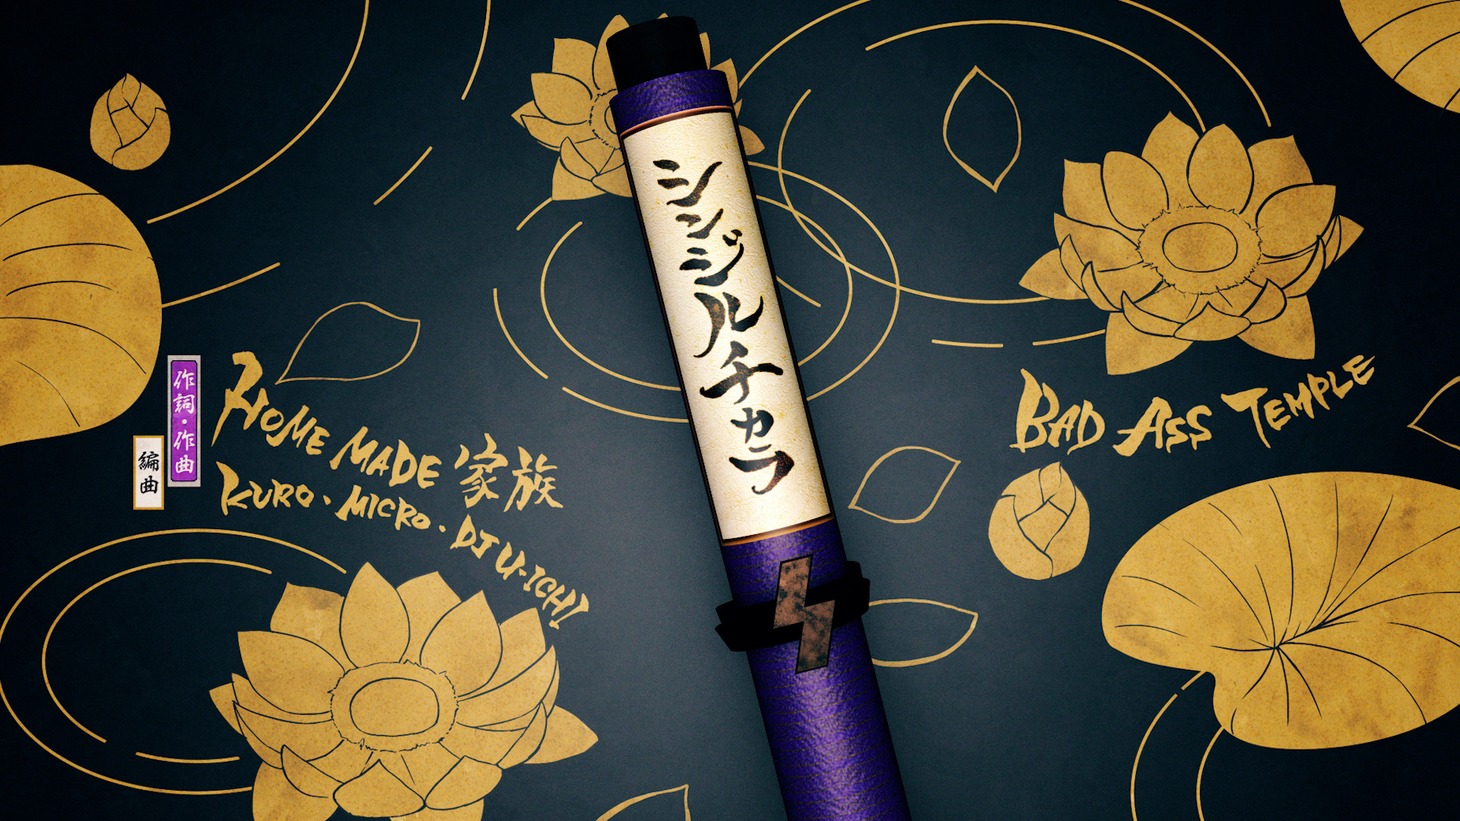 シンジルチカラ
作詞・作曲
編曲
HOME MADE 家族
KURO・MICRO・DJ U-ICHI
BAD ASS TEMPLE